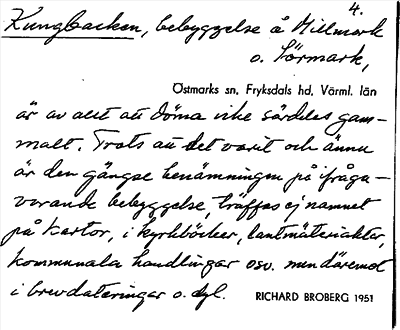 4.
Kungbacken, bebyggelse å Millmark
o. Lörmark,
Östmarks sn, Fryksdals hd, Värml. län
är av allt att döma icke särdeles gam-
malt. Trots att det varit och ännu
är den gängse benämningen på ifråga-
varande bebyggelse, träffas ej namnet
på kartor, i kyrkböcker, lantmäteriakter,
kommunala handlingar osv. men däremot
i brevdateringar o. dyl.
RICHARD BROBERG 1951